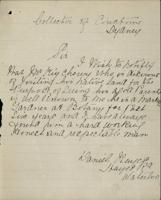 Collector of Customs
Sydney
Sir
I Wish to Notify
that
who is desirous
of visiting his native land for the
purpose of seeing his aged Parents
is well known to me as a market
Gardener at Botany for the last
two years and I have always
found him a hard working
Honest and respectable man
Daniel
Waterloo